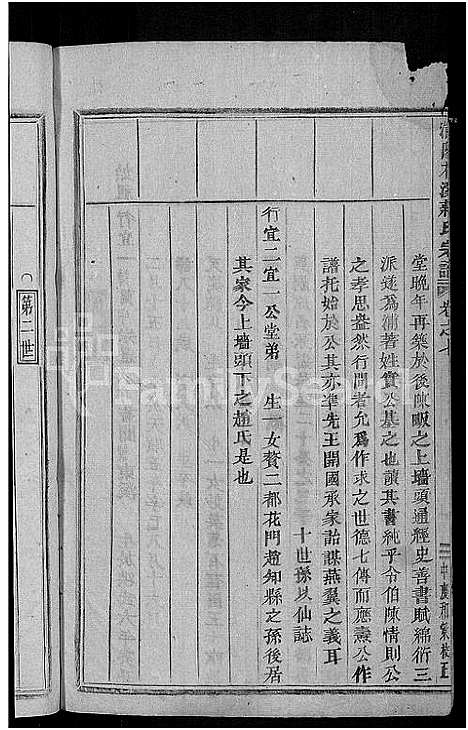 氏宗譜 卷之七
堂晚年再築於後陳畈之上墻頭通經史善書賦綿衍三
派遂爲浦著姓實公基之也讀其書純乎令伯陳情則公
之孝思盎然行間者允爲作求之世德七傳而應壽公作
譜托始於公其亦準先王開國承家詒謀燕翼之義耳
十世孫以仙誌
行宜二宜一公堂弟 生一女贅二都花門趙知縣之孫後居
其家今上墻頭下之趙氏是也
第二世